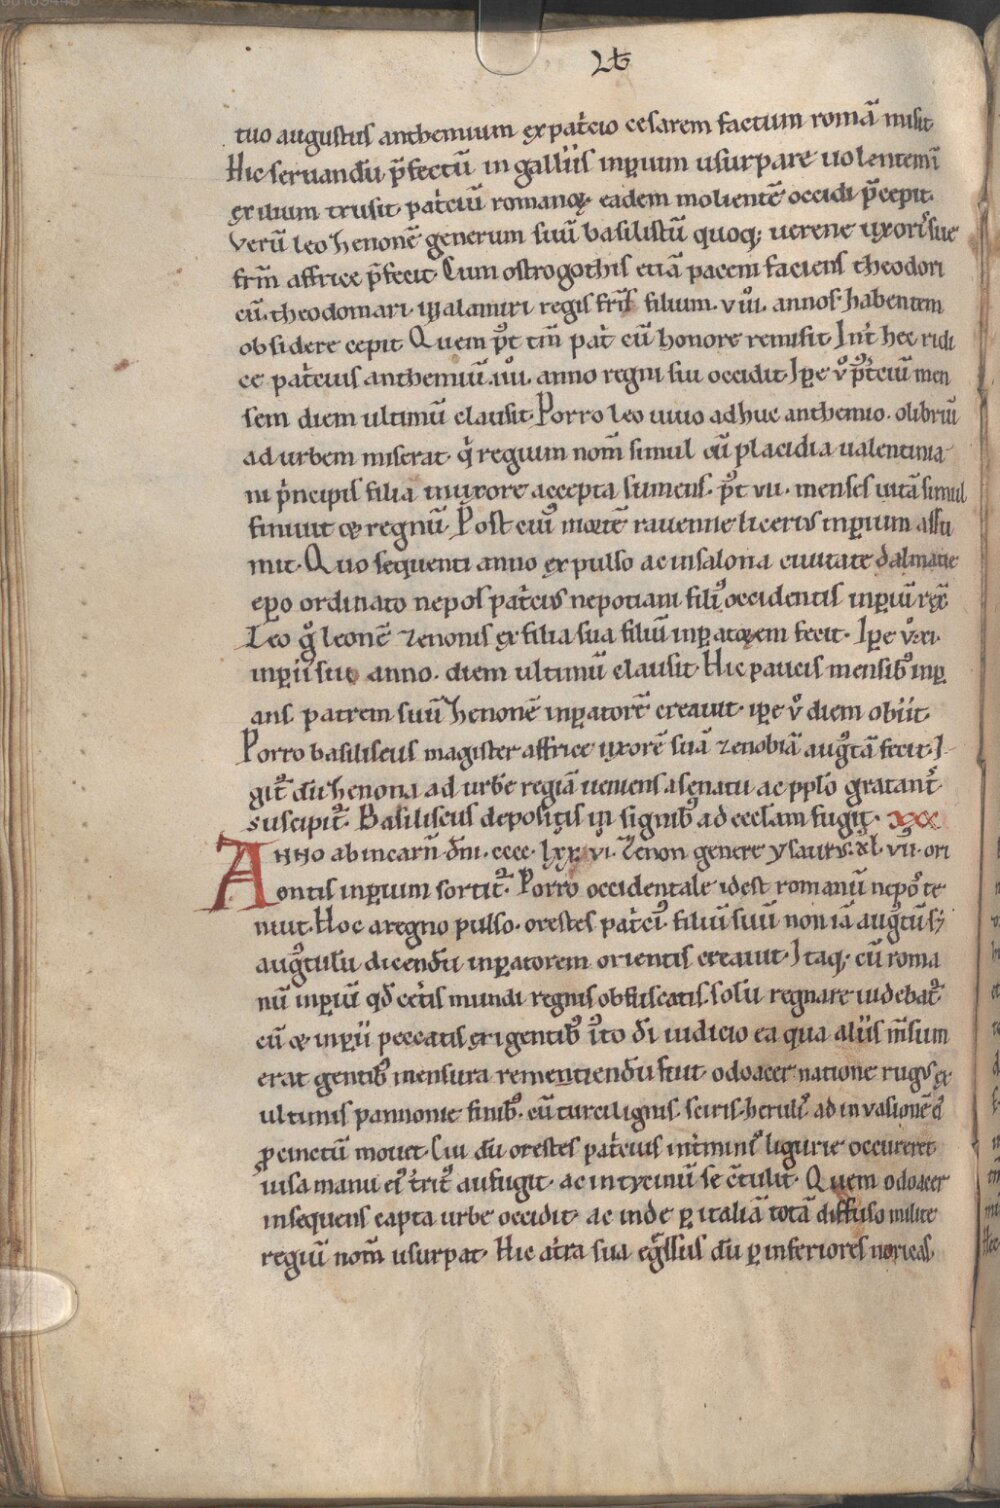 Lıb
tuo augustus anthemium ex pat̄cio cesarem factum romā misit
Hic seruandū p̄fectū in galliis inp̄ium usurpare uolentem ī
exilium trusit· pat̄ciū romanoꝝ eadem molientē occidi p̄cepit·
Verū leo henonē generum suū basilistū quoq; uerene uxoris sue
frm̄ affrice p̄fecit· Cum ostrogothis etiā pacem faciens theodori
cū· theodomari· walamiri regis fr̄is filium· vııı· annos· habentem
obsidere cepit Quem pꝰt tm̄ pat̄ cū honore remisit Int̄ hec ridi
ce pat̄cius anthemiū· ıııı· anno regni sui occidit Ip̄e v͛o pꝰt eiū men
sem diem ultimū clausit· Porro leo uiuo adhuc anthemio· olibriū
ad urbem miserat· q̄ regium nom̄ simul cū placidia ualentinia
ni p̄ncipis filia in uxore accepta sumens· pꝰt vıı· menses uitā simul
finiuit & regnū· Post eiꝰ mortē rauenne licerius inp̄ium assu
mit· Quo sequenti anno expulso ac in salona ciuitate dalmatie
ep̄o ordinato nepos pat̄cius nepotiani filiꝰ occidentis inp̄iū rex̄
Leo g͛ leonē zenonis ex filia sua filiū inp̄atorem fecit· Ip̄e v͛o xı·
inp̄ii sui anno· diem ultimū clausit· Hic paucis mensibꝰ inp̄
ans patrem suū henonē inp̄atorē creauit· ip̄e v͛ diem obiit·
Porro basiliscus magister affrice uxorē suā zenobiā augꝰtā fecit· I
git᷑ dū henona ad urbē regiā ueniens a senatu ac pplo gratant᷑
suscipit᷑· Basiliscus depositis insignibꝰ ad eccl̄am fugit· xxx
Anno ab incarn̄ dn̄i· cccc· lxx vı· Zenon genere ysaurꝰ· xl· vıı· ori
ontis inp̄ium sortit᷑· Porro occidentale idest romanū nepꝰ te
nuit· Hoc a regno pulso· orestes pat̄ciꝰ filiū suū non iā augꝰtū s;
augꝰtulū dicendū inp̄atorem orientis creauit· Itaq; cū roma
nū inp̄iū qd̄ cet̄is mundi regnis obfuscatis· solū regnare uidebat᷑
cū & inp̄ii peccatis exigentibꝰ iꝰto dī iudicio ea qua aliis m̄sum
erat gentibꝰ mensura remetiendū fuit· odoacer natione rugꝰ ex
ultimis pannonie finibꝰ· cū turcilignis· sciris· herulꝰ· ad inuasionē eꝰ
ꝓcinctū mouet· Cui dū orestes pat̄cius int̄ miniꝰ ligurie occurreret
uisa manu eiꝰ t̄ritꝰ aufugit· ac in tycinū se c̄tulit· Quem odoacer
insequens capta urbe occidit· ac inde ꝑ italiā totā diffuso milite
regiū nom̄ usurpat· Hic at̄ra sua eḡssus dū ꝑ inferiores noricas